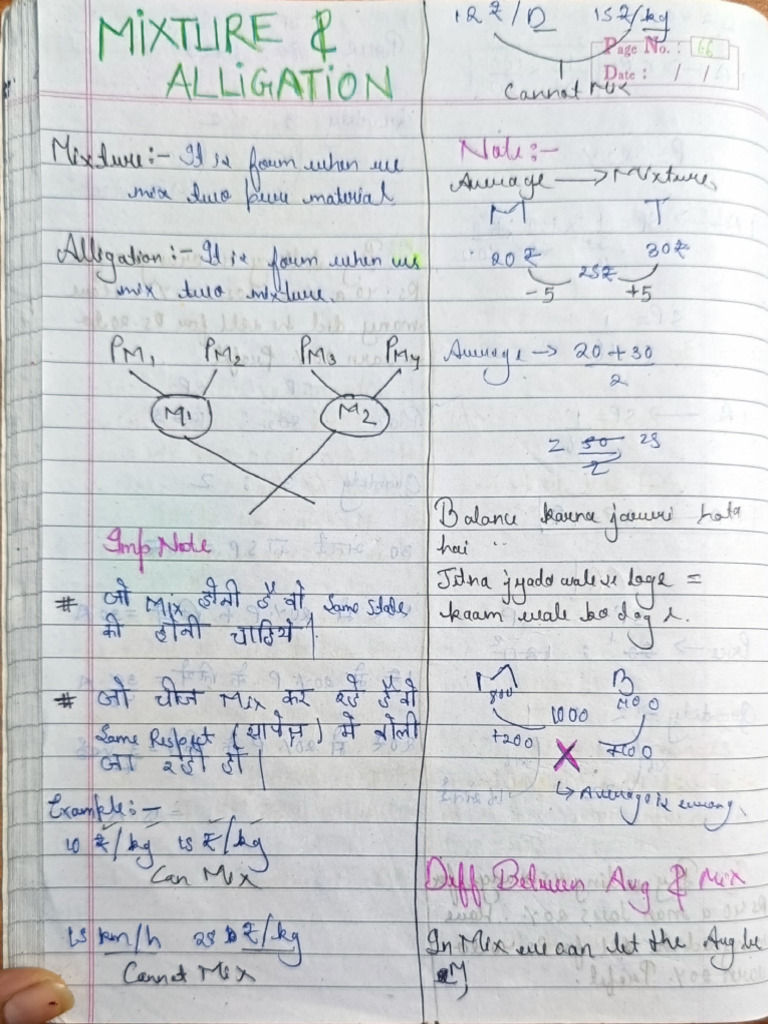 MIXTURE &
ALLIGATION
Mixture:- It is foum when we
mix two pure material
Allegation:- It is foum when we
mix two mixture.
PM1 PM2 PM3 PM4
M1 M2
Imp Note
# जो Mix होनी है वो Same State
में होनी चाहिये।
# जो चीज Mix कर रहे है वो
Same Respect (सापेक्ष) में बोली
जा रही हो।
Example:-
10 ₹/kg 15 ₹/kg
Can Mix
15 km/h 25 ₹/kg
Cannot Mix
12 ₹/D 15 ₹/kg
Page No.: 66
Date: / /
Cannot Mix
Note:-
Average → Mixture
M T
20₹ 30₹
25₹
-5 +5
Average → 20+30
2
50 25
2
Balance karna jaruri hota
hai
Jitna jyada wale se loge =
kaam wale ko doge.
M B
800
1000
+200
X
↳ Average is wrong.
Diff Between Avg & Mix
In Mix we can let the Avg be